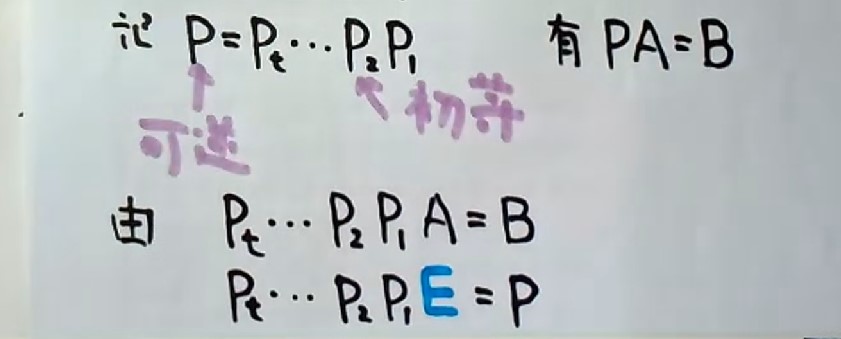 记 P=Pₜ···P₂P₁ 有 PA=B
可逆 初等
由 Pₜ···P₂P₁A=B
Pₜ···P₂P₁E=P